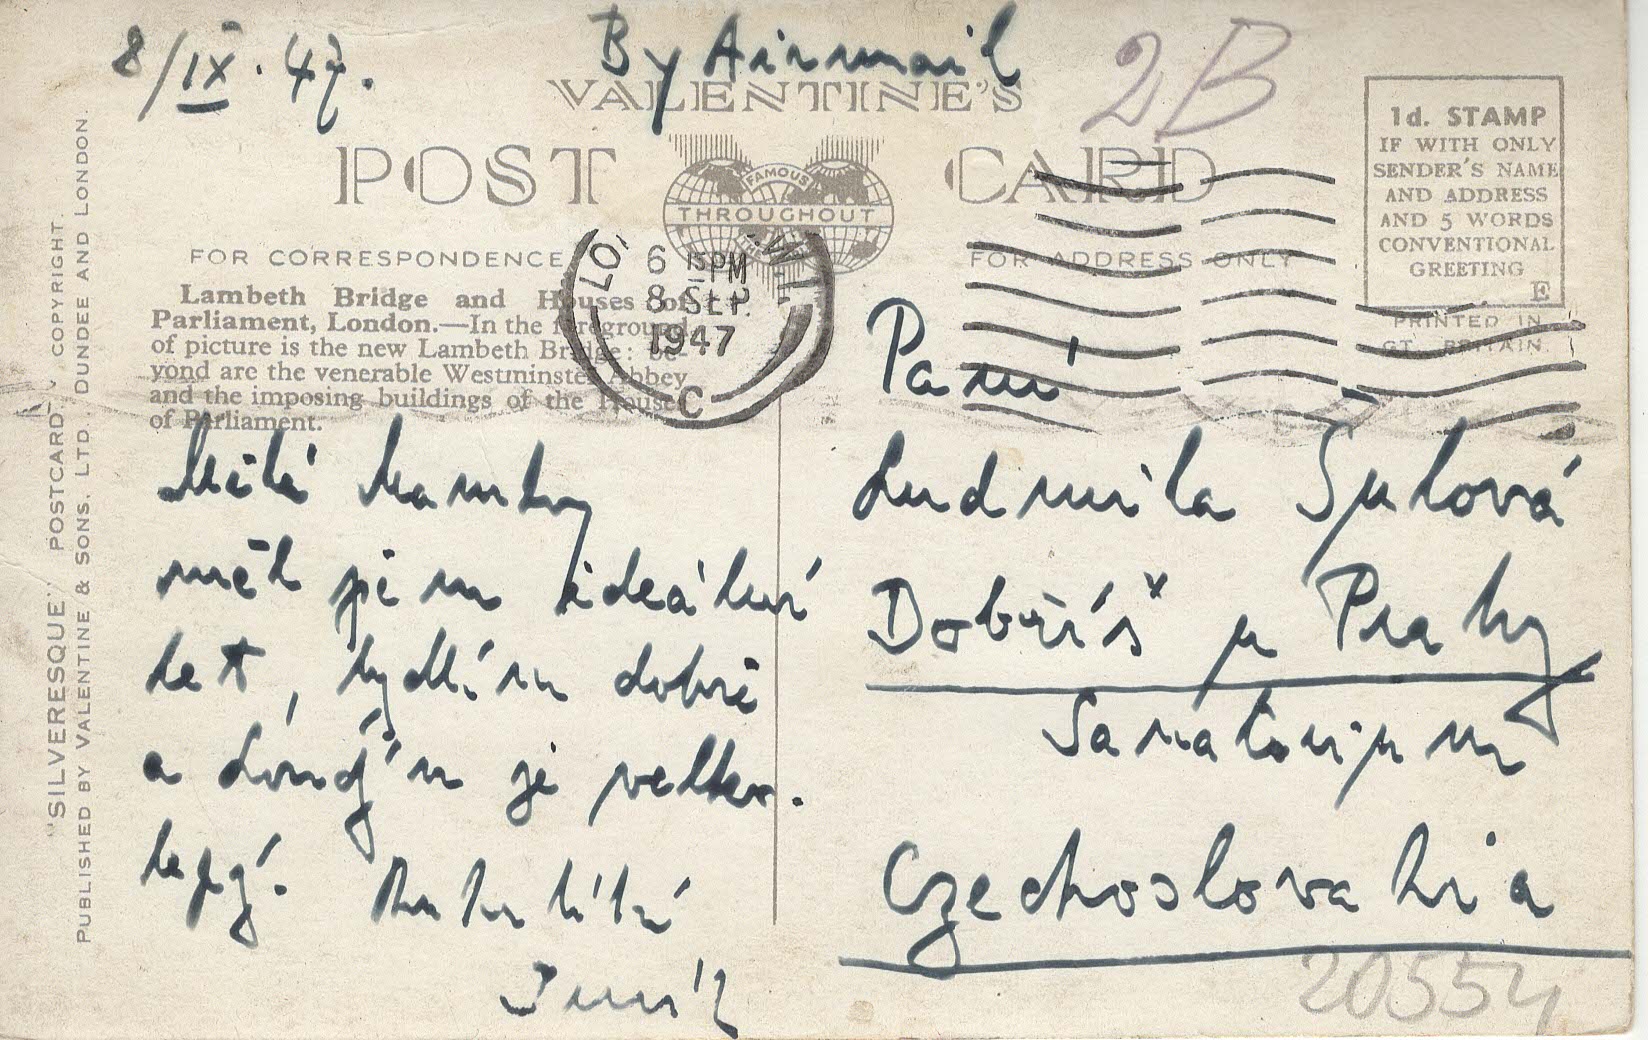 8/IX. 47.
By Airmail
2B
VALENTINE'S
POST CARD
FAMOUS
THROUGHOUT
THE
1d. STAMP
IF WITH ONLY
SENDER'S NAME
AND ADDRESS
AND 5 WORDS
CONVENTIONAL
GREETING
E
PRINTED IN
GT. BRITAIN.
FOR CORRESPONDENCE
FOR ADDRESS ONLY
6 15PM
8 SEP.
1947
C
Lambeth Bridge and Houses of
Parliament, London.—In the foreground
of picture is the new Lambeth Bridge: be-
yond are the venerable Westminster Abbey
and the imposing buildings of the Houses
of Parliament.
"SILVERESQUE" POSTCARD COPYRIGHT.
PUBLISHED BY VALENTINE & SONS, LTD. DUNDEE AND LONDON.
Milá Mamko
měl jsem ideální
let, bydlím dobře
a Londýn je velko-
lepý. Ruku líbá
Paní
Ludmila Šulová
Dobříš u Prahy
Sanatorium
Czechoslovakia
20554